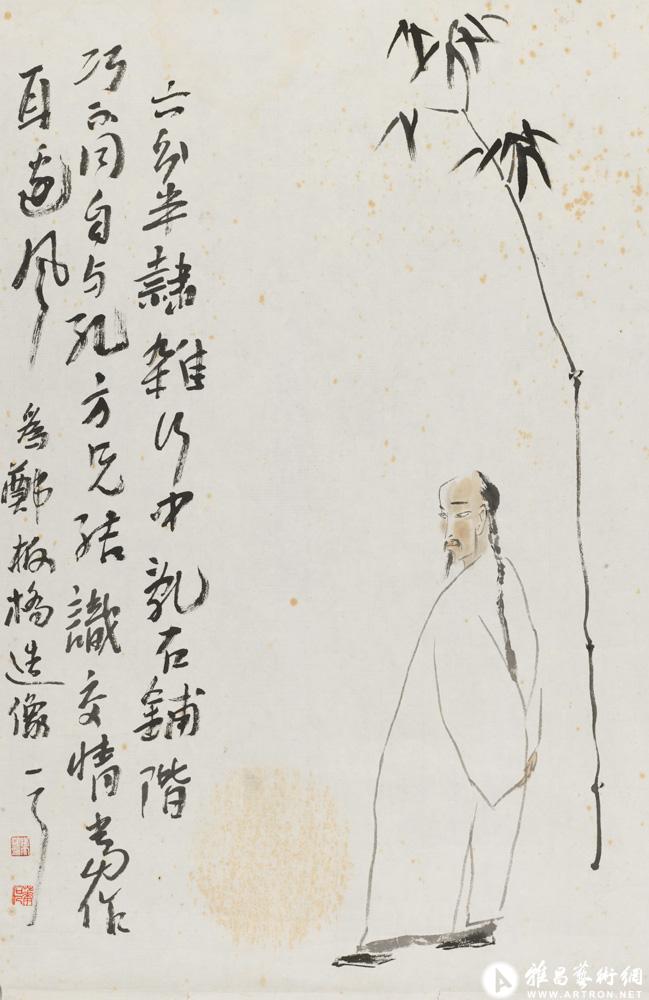 六分半隸雜行中亂石鋪階
巧不同自与孔方兄结識交情當作
耳邊风
為鄭板橋造像 一了
雅昌藝術網
WWW.ARTRON.NET